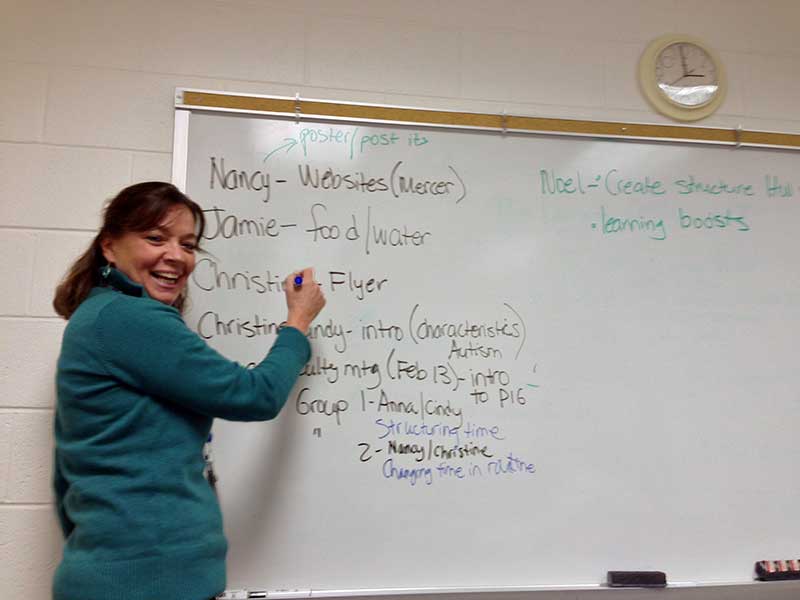 poster/post its
Nancy- Websites (Mercer)
Jamie- food/water
Christin - Flyer
Christine ndy- intro (characteristics)
Autism
ulty mtg (Feb 13) - intro
to P16
Group 1- Anna/Cindy
Structuring time
" 2- Nancy/Christine
Changing time in routine
Noel- • Create structure Hull
• learning boosts